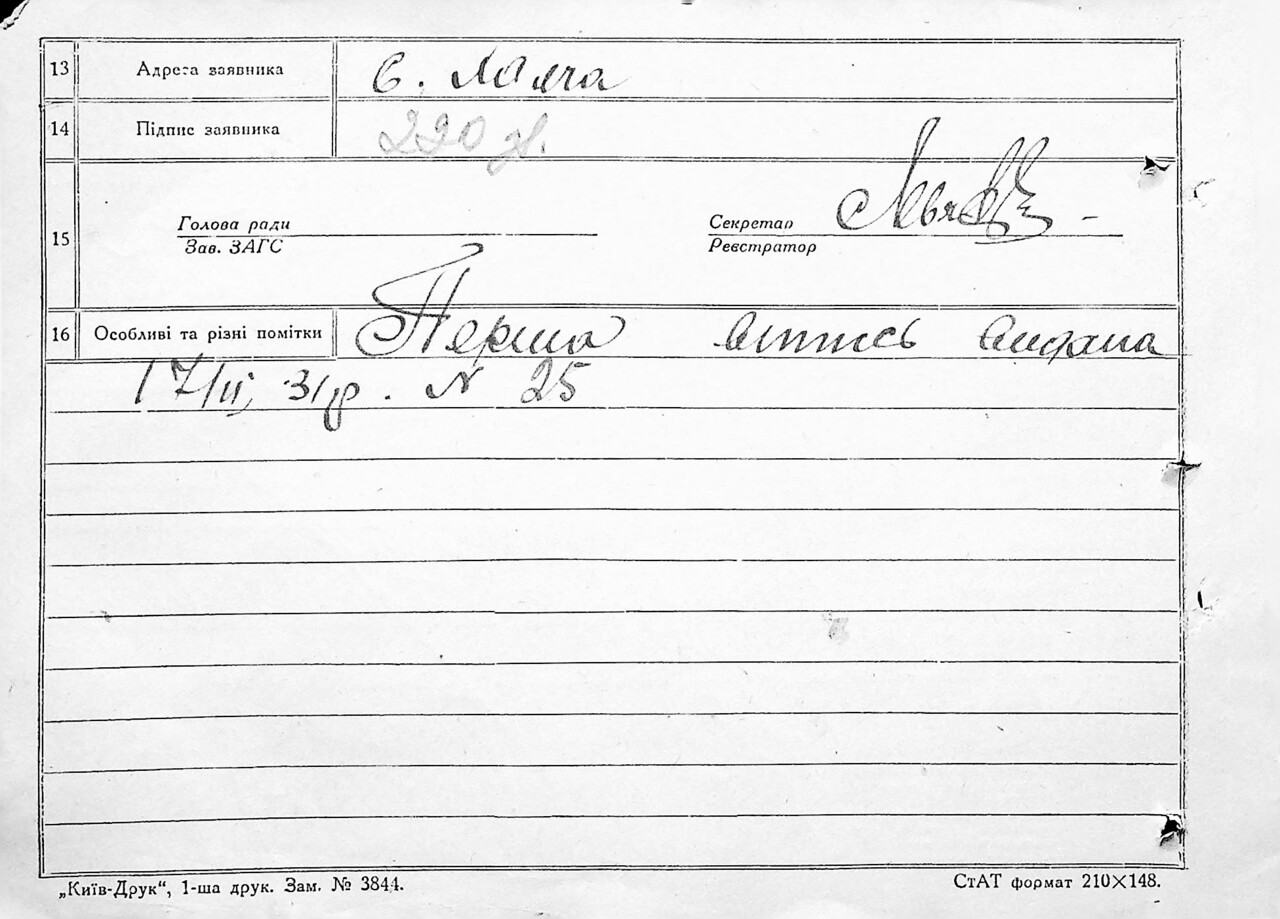 13 Адреса заявника с. Халча
14 Підпис заявника 220 зв.
15 Голова ради Секретар
Зав. ЗАГС Реєстратор
16 Особливі та різні помітки Перша випись видана
17/II, 31 р. N 25
„Київ-Друк“, 1-ша друк. Зам. № 3844. СтАТ формат 210×148.